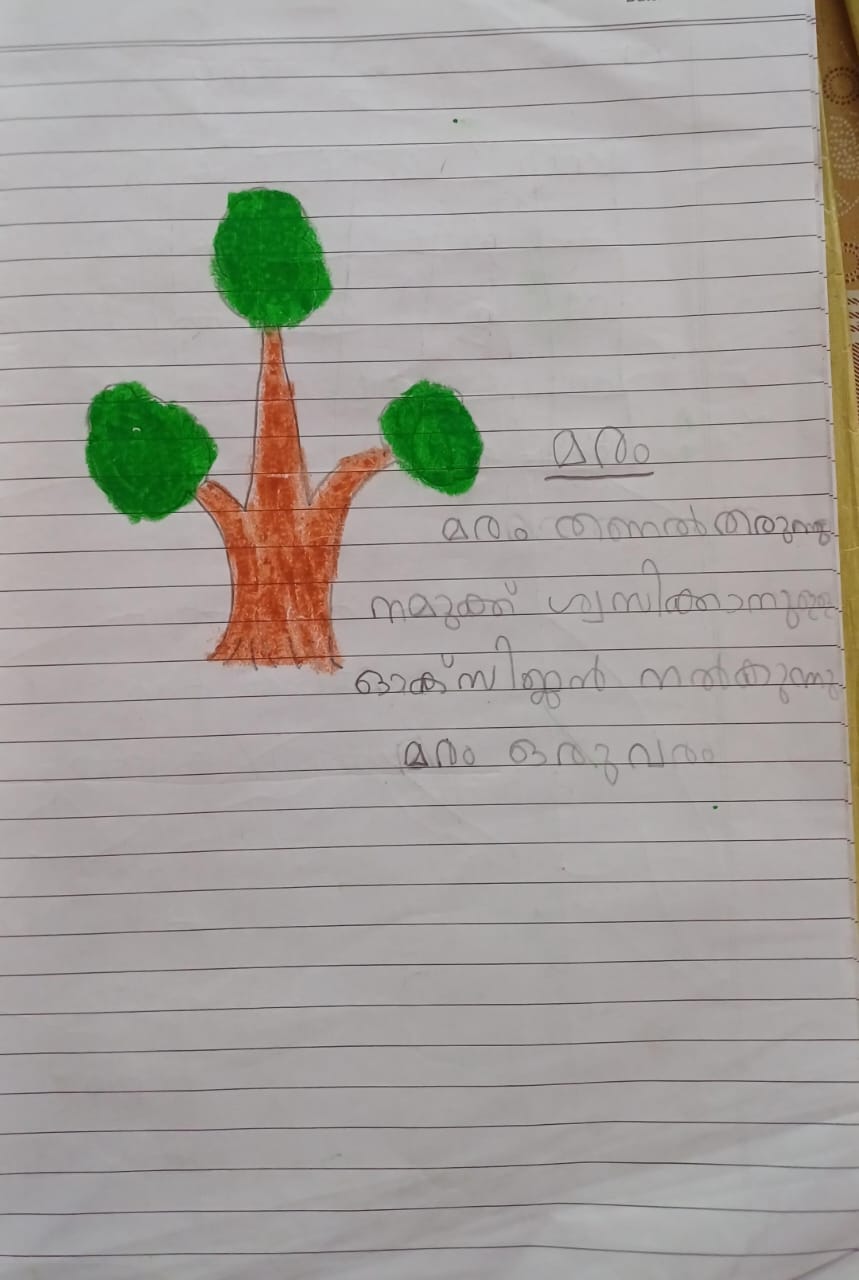 മരം
മരം തണൽ തരുന്നു
നമുക്ക് ശ്വസിക്കാനുള്ള
ഓക്സിജൻ നൽകുന്നു
മരം ഒരു വരം